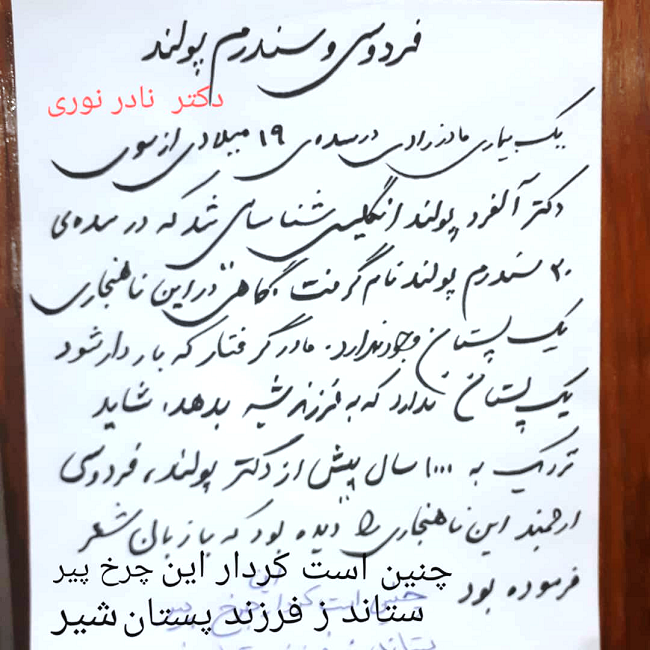 فردوسی و سندرم پولند
دکتر نادر نوری
یک بیماری مادرزادی در سده‌ی ۱۹ میلادی از سوی
دکتر آلفرد پولند انگلیسی شناسایی شد که در سده‌ی
۲۰ سندرم پولند نام گرفت. گاهی در این ناهنجاری
یک پستان وجود ندارد. مادر گرفتار که باردار شود
یک پستان ندارد که به فرزند شیر بدهد. شاید
نزدیک به ۱۰۰۰ سال پیش از دکتر پولند، فردوسی
ارجمند این ناهنجاری را دیده بود که با زبان شعر
فرموده بود
چنین است کردار این چرخ پیر
ستاند ز فرزند پستان شیر